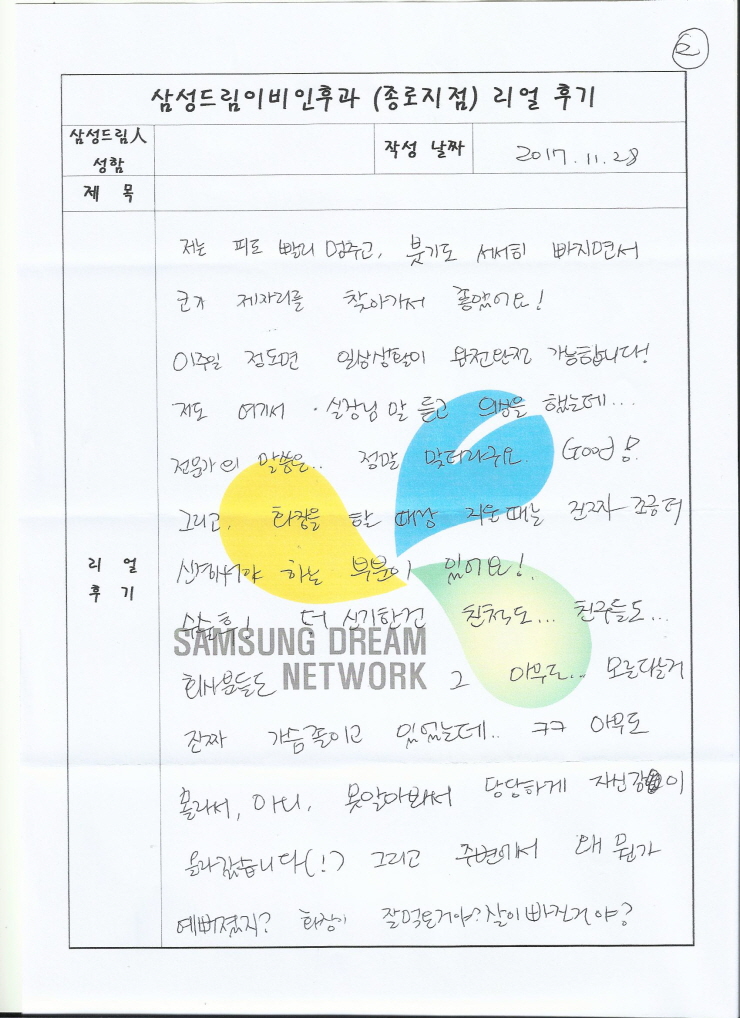 2
삼성드림이비인후과 (종로지점) 리얼 후기
삼성드림人
성함
작성 날짜
2017. 11. 28
제 목
리 얼
후 기
저는 피도 빨리 멈추고, 붓기도 서서히 빠지면서
코가 제자리를 찾아가서 좋았어요!
이주일 정도면 일상생활이 완전완전 가능합니다!
저도 여기서 실장님 말 듣고 의심을 했는데...
전문가의 말씀은.. 정말 맞더라구요. Good!
그리고, 화장을 할 때랑 지울때는 진짜 조금 더
신경써야 하는 부분이 있어요!
수술후! 더 신기한건 친척도... 친구들도...
회사분들도 그 아무도... 모른다는거
SAMSUNG DREAM
NETWORK
진짜 가슴졸이고 있었는데.. ㅋㅋ 아무도
몰라서, 아니, 못알아봐서 당당하게 자신감이
올라갔습니다(!) 그리고 주변에서 왜 뭔가
예뻐졌지? 화장이 잘먹은거야? 살이 빠진거야?